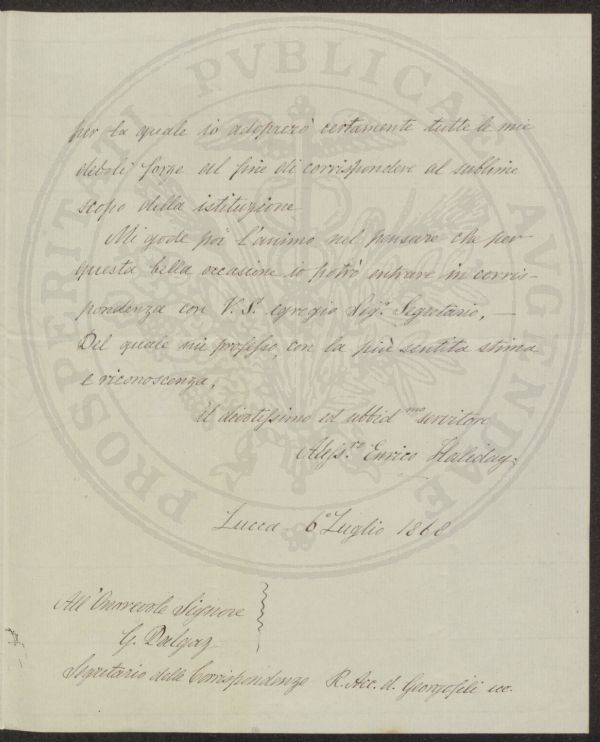 per la quale io adoprerò certamente tutte le mie
deboli forze al fine di corrispondere al sublime
scopo della istituzione
Mi gode poi l'animo nel pensare che per
questa bella occasione io potrò entrare in corris-
pondenza con V. S. egregio Sig.r Segretario, —
Del quale mi professo, con la più sentita stima
e riconoscenza,
il devotissimo ed obbid mo servitore
Aless.ro Enrico Haliday
Lucca 6 Luglio 1868
All' Onorevole Signore
G. Dalgaz
Segretario delle Corrispondenze R. Acc. d. Georgofili ecc.
PROSPERITATI PVBLICAE AVGENDAE